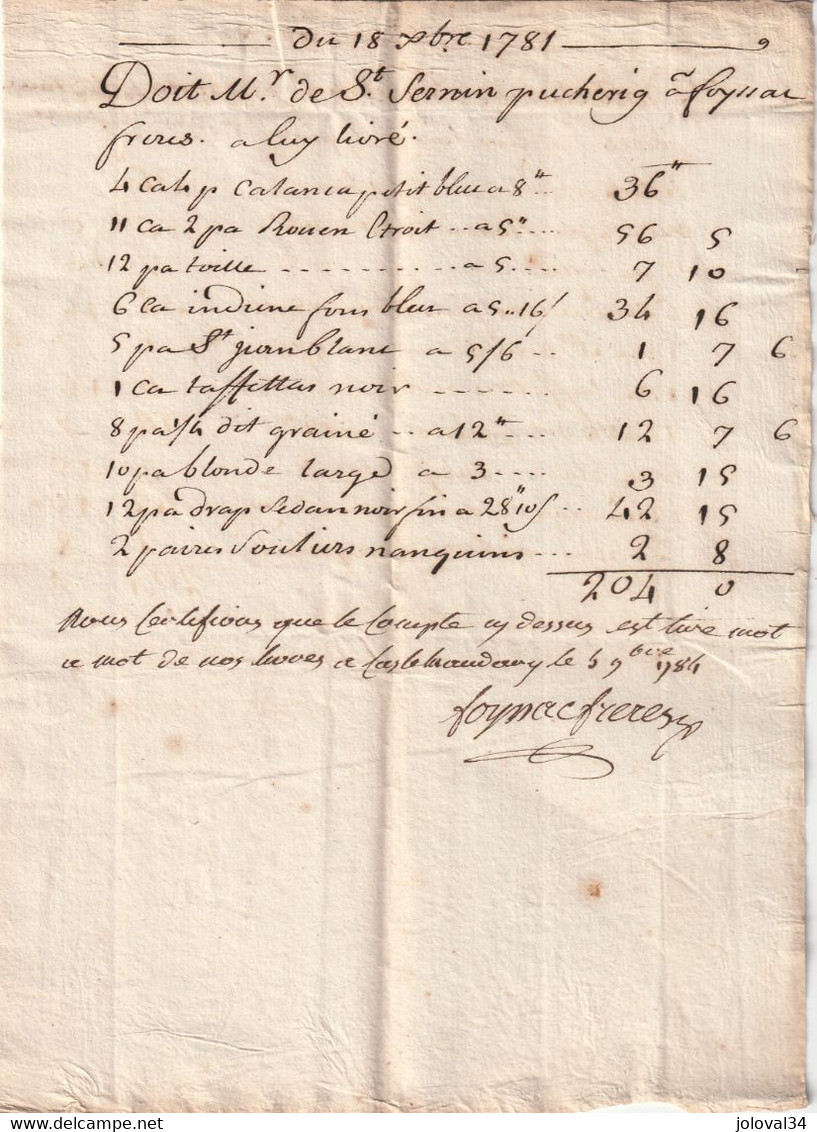 Du 18 xbre 1781 9
Doit Mr. de St. Sernin pucheriq a foyssac
freres. a luy livré.
4 ca 4 p Calanca petit bleu a 8" 36"
11 ca 2 pa Rouen Etroit .. a 5" .... 56 5
12 pa toille ............ a 5 .... 7 10
6 ca indiene fons bleu a 5 .. 16/ 34 16
5 pa St jean blanc a 5/6 .. 1 7 6
1 ca taffettas noir ....... 6 16
8 pa 1/4 dit grainé .. a 12" .... 12 7 6
10 pa blonde large a 3 .... 3 15
12 pa drap Sedan noir fin a 28" 10/ .. 42 15
2 paires Souliers nanquins ... 2 8
204 0
Nous Certifions que le Compte cy dessus est tiré mot
a mot de nos livres a Castelnaudary le 5 9bre 1784
foyssac freres
joloval34